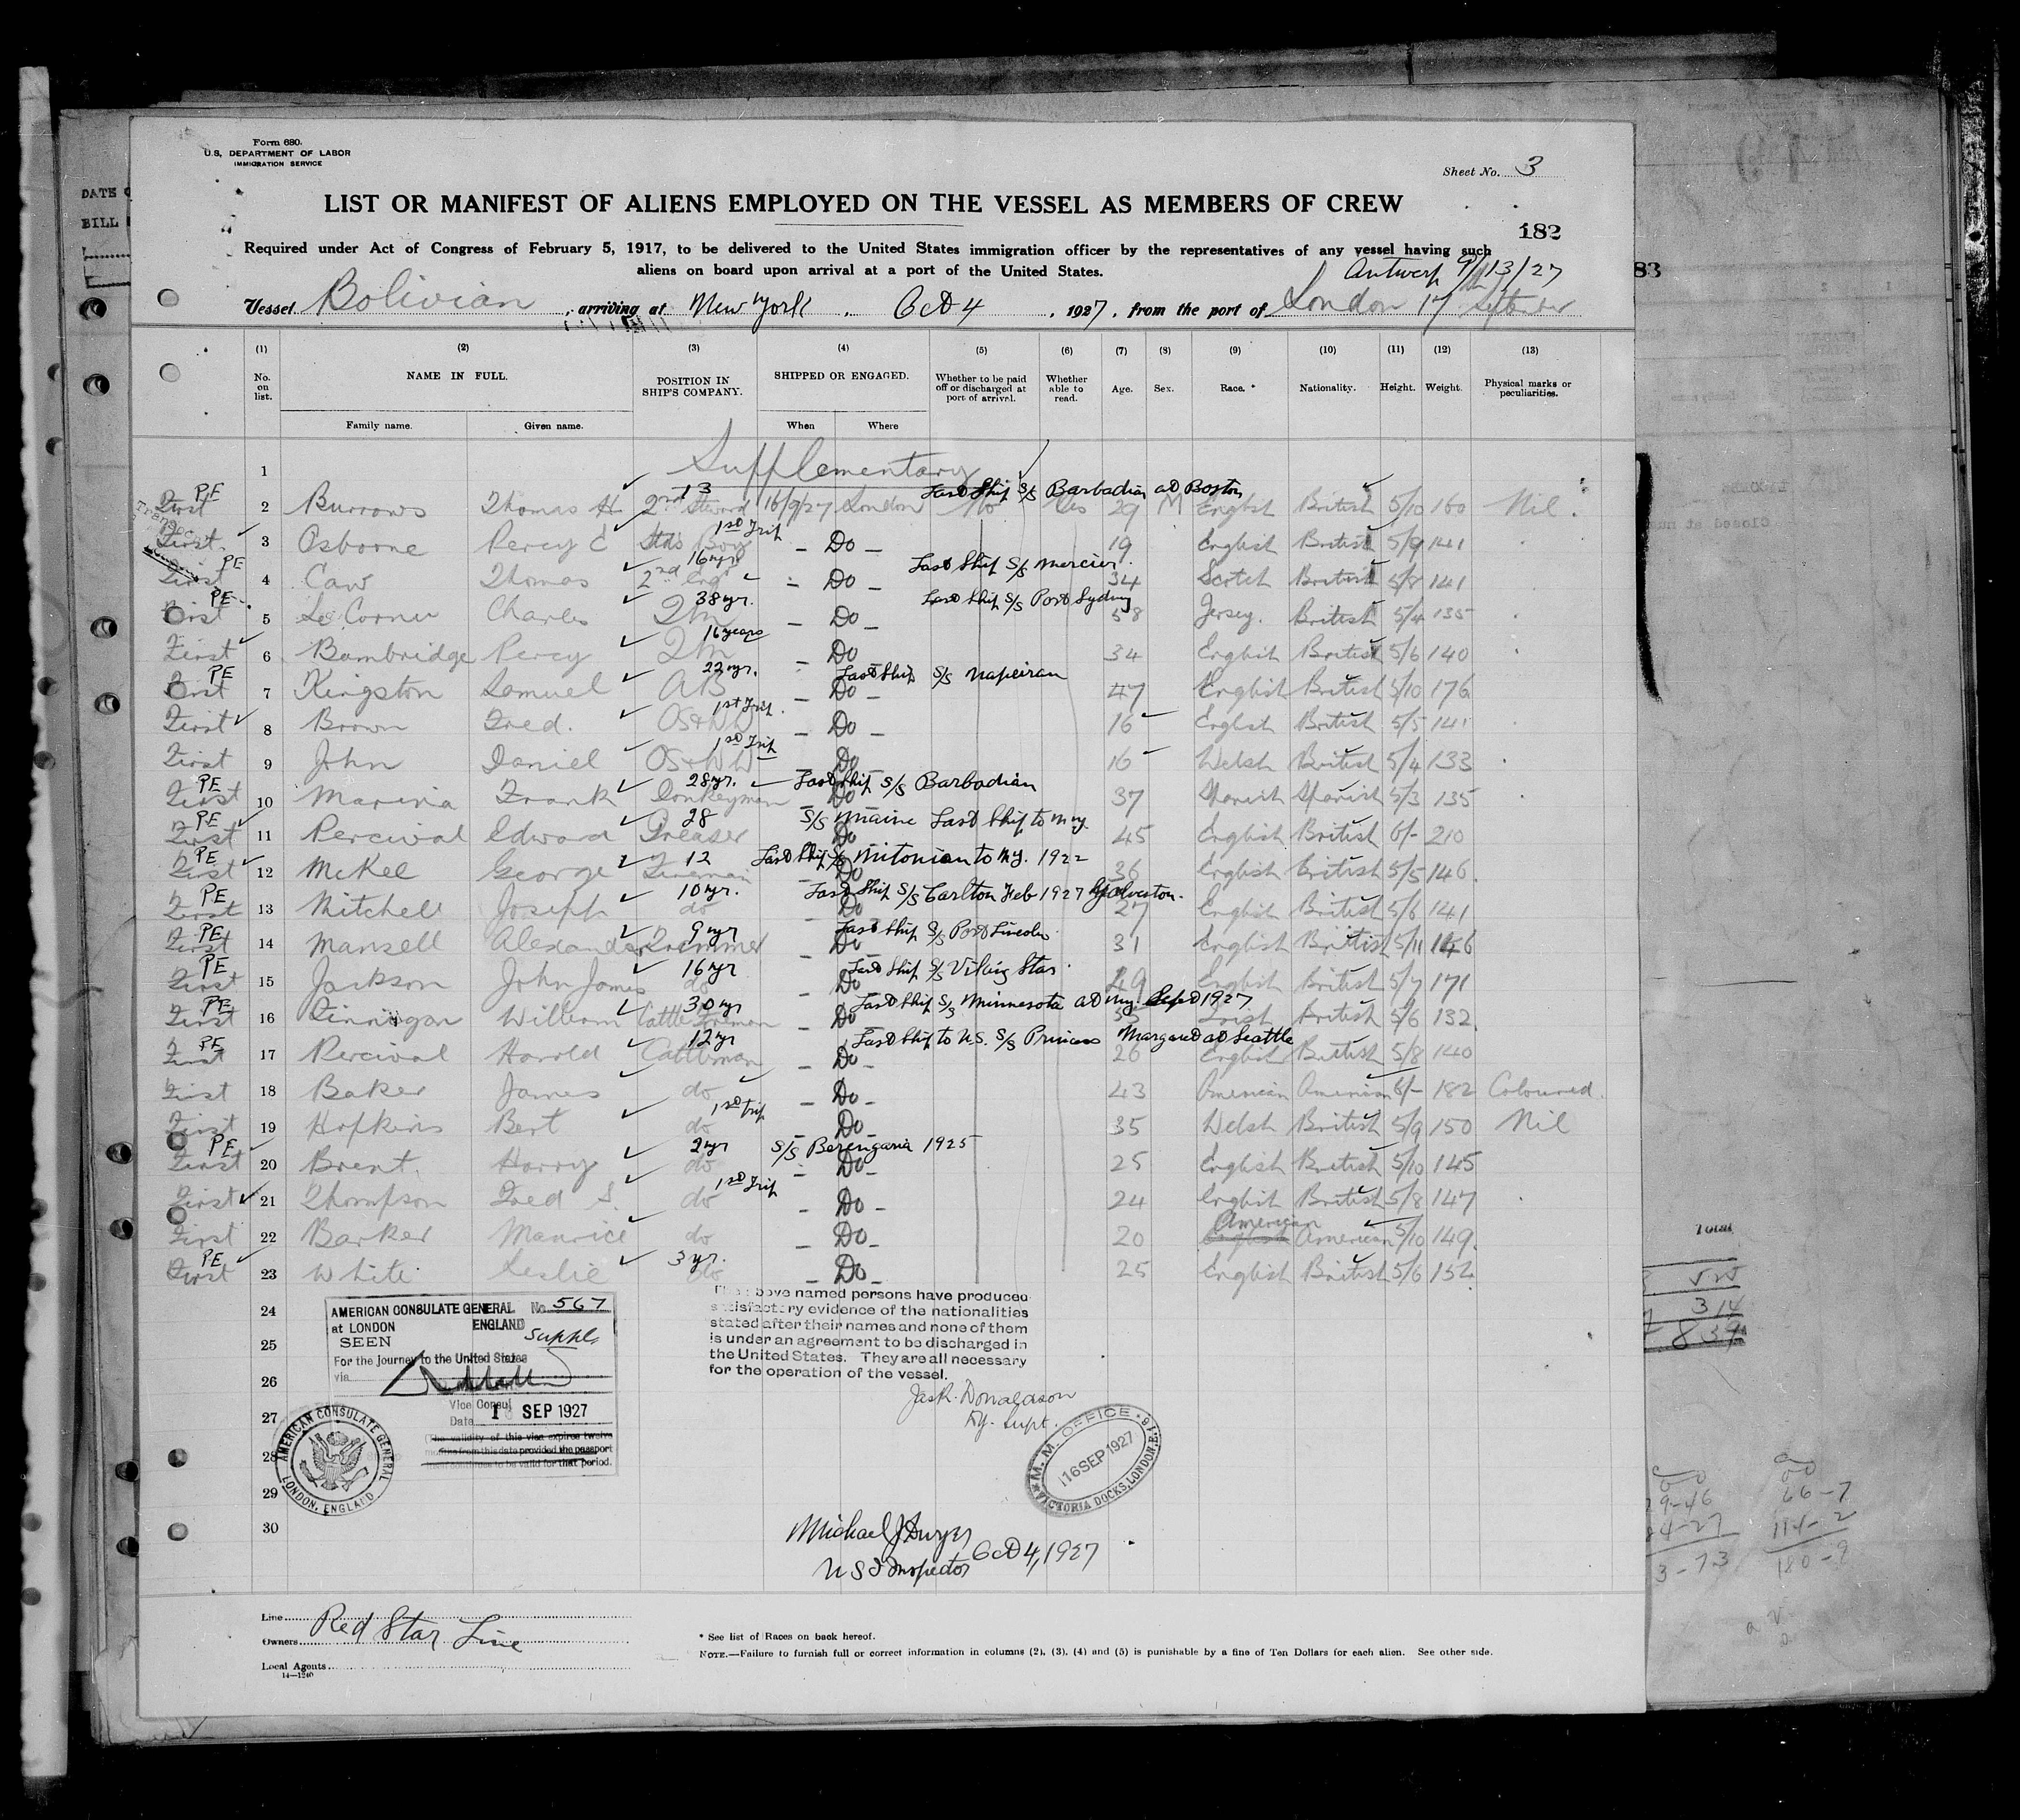 Form 680.
U.S. DEPARTMENT OF LABOR
IMMIGRATION SERVICE
Sheet No. 3
LIST OR MANIFEST OF ALIENS EMPLOYED ON THE VESSEL AS MEMBERS OF CREW
182
Required under Act of Congress of February 5, 1917, to be delivered to the United States immigration officer by the representatives of any vessel having such
aliens on board upon arrival at a port of the United States.
Antwerp 9/13/27
Vessel Bolivian, arriving at New York, Oct 4, 1927, from the port of London 17th September
(1) (2) (3) (4) (5) (6) (7) (8) (9) (10) (11) (12) (13)
No. on list. NAME IN FULL. POSITION IN SHIP'S COMPANY. SHIPPED OR ENGAGED. Whether to be paid off or discharged at port of arrival. Whether able to read. Age. Sex. Race.* Nationality. Height. Weight. Physical marks or peculiarities.
Family name. Given name. When Where
1 Supplementary
PE 13 Last Ship S/S Barbadian at Boston
First 2 Burrows Thomas H 2nd Steward 16/9/27 London No Yes 29 M English British 5/10 160 Nil.
1st Trip
First 3 Osborne Percy C Stds Boy - Do - 19 English British 5/9 141
PE 16 yrs Last Ship S/S Mercier
First 4 Caw Thomas 2nd Engr - Do - 34 Scotch British 5/8 141
PE 38 yr. Last Ship S/S Port Sydney
First 5 Le Cornu Charles QM - Do - 58 Jersey. British 5/4 135
16 years
First 6 Bambridge Percy QM - Do 34 English British 5/6 140
PE 22 yr. Last Ship S/S Napeiran
First 7 Kingston Samuel AB - Do - 47 English British 5/10 176
1st Trip
First 8 Brown Fred. OS & WW - Do - 16 English British 5/5 141
1st Trip
First 9 John Daniel OS & WW - Do - 16 Welsh British 5/4 133
PE 28 yr. Last Ship S/S Barbadian
First 10 Marina Frank Donkeyman - Do 37 Spanish Spanish 5/3 135
PE 28 S/S Maine Last Ship to N.Y.
First 11 Percival Edward Greaser - Do 45 English British 6/- 210
PE 12 Last Ship S/S Mitonian to N.Y. 1922
First 12 McKee George Fireman - Do 36 English British 5/5 146
PE 10 yr. Last Ship S/S Carlton Feb 1927 Galveston.
First 13 Mitchell Joseph do - Do 27 English British 5/6 141
PE 9 yr Last Ship S/S Port Lincoln
First 14 Mansell Alexander Trimmer - Do 31 English British 5/11 146
PE 16 yr Last Ship S/S Viking Star
First 15 Jackson John James do - Do 49 English British 5/7 171
PE 30 yr Last Ship S/S Minnesota at N.Y. Sept 1927
First 16 Finnigan William Cattle Foreman - Do Irish British 5/6 132
PE 12 yr Last Ship to U.S. S/S Princess Margaret at Seattle
First 17 Percival Harold Cattleman - Do - 26 English British 5/8 140
First 18 Baker James do - Do - 43 American American 6/- 182 Coloured.
1st trip
First 19 Hopkins Bert do - Do - 35 Welsh British 5/9 150 Nil
PE 2 yr S/S Berengaria 1925
First 20 Brent. Harry do - Do - 25 English British 5/10 145
1st Trip
First 21 Thompson Fred S. do - Do - 24 English British 5/8 147
American
First 22 Barker Maurice do - Do - 20 English American 5/10 149
PE 3 yr.
First 23 White Leslie do - Do - 25 English British 5/6 152
24
25
26
27
28
29
30
AMERICAN CONSULATE GENERAL No. 567
at LONDON ENGLAND Suppl.
SEEN
For the journey to the United States
via
Vice Consul
Date 1 SEP 1927
(The validity of this visa expires twelve
months from this date provided the passport
continues to be valid for that period.
AMERICAN CONSULATE GENERAL
LONDON, ENGLAND
The above named persons have produced
satisfactory evidence of the nationalities
stated after their names and none of them
is under an agreement to be discharged in
the United States. They are all necessary
for the operation of the vessel.
Jas R. Donaldson
Dy. Supt.
M.M. OFFICE
16 SEP 1927
VICTORIA DOCKS, LONDON, E.
Michael J Dwyer
U S I Inspector Oct 4, 1927
Line
Red Star Line
Owners
Local Agents
14—1240
* See list of Races on back hereof.
NOTE.—Failure to furnish full or correct information in columns (2), (3), (4) and (5) is punishable by a fine of Ten Dollars for each alien. See other side.
DATE
BILL
83
Closed at
Total
314
839
9-46
4-27
3-73
66-7
114-2
180-9